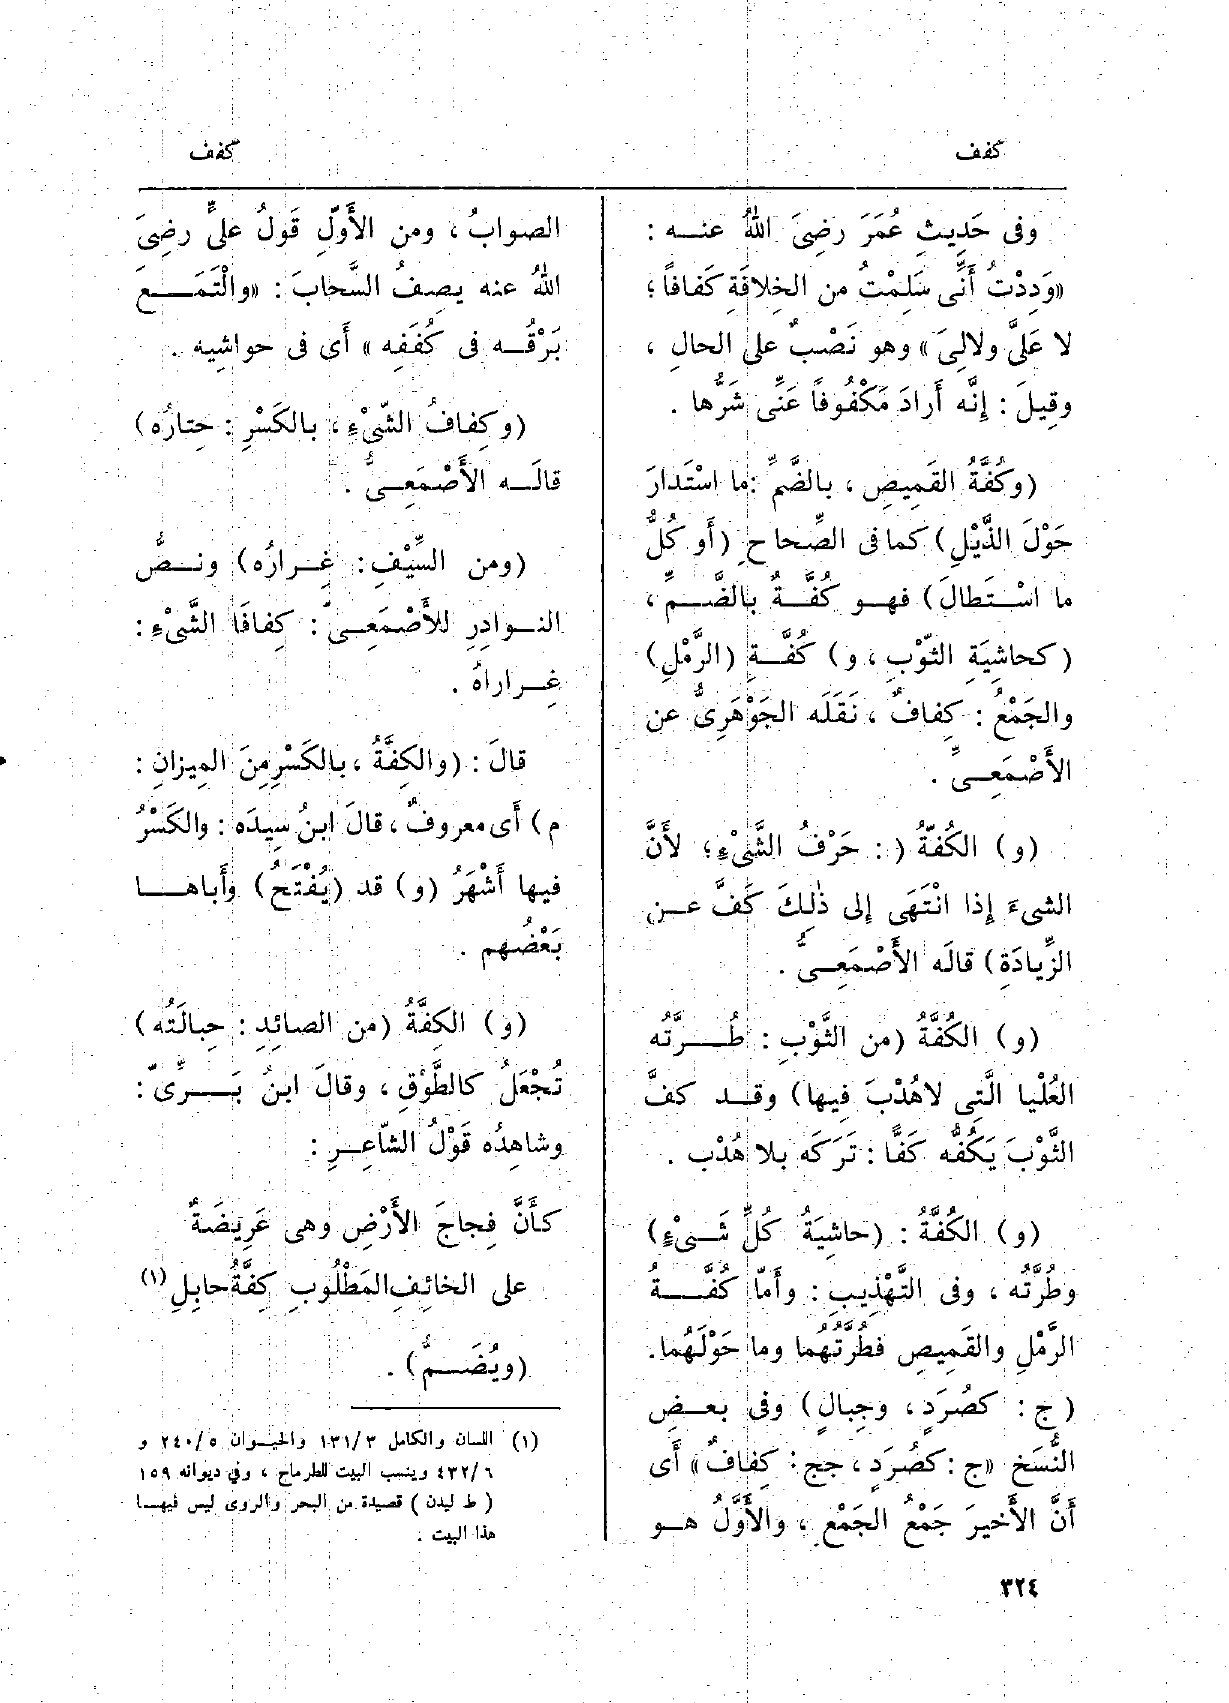 كفف
كفف
وفى حَدِيثِ عُمَرَ رضِىَ اللهُ عنـه :
«وَدِدْتُ أَنِّى سَلِمْتُ من الخِلافَةِ كَفافًا؛
لا عَلَىَّ ولالِىَ» وهو نَصْبٌ على الحالِ ،
وقِيلَ : إِنَّه أَرادَ مَكْفُوفاً عَنِّى شَرُّها .
(وكُفَّةُ القَمِيصِ ، بالضَّمِّ :ما اسْتَدارَ
حَوْلَ الذَّيْلِ) كما فى الصِّحاحِ (أَو كُلُّ
ما اسْـتَطالَ) فهـو كُفَّـةٌ بالضَّـمِّ ،
(كحاشِيَةِ الثَّوْبِ ، و) كُفَّـةِ (الرَّمْلِ)
والجَمْعُ : كِفافٌ ، نَقَلَه الجَوْهَرِىُّ عن
الأَصْمَعِـىِّ .
(و) الكُفَّةُ ( : حَرْفُ الشَّىْءِ؛ لأَنَّ
الشىءَ إِذا انْتَهَى إِلى ذٰلِكَ كَفَّ عـن
الزِّيادَةِ) قالَه الأَصْمَعِـىُّ .
(و) الكُفَّةُ (من الثَّوْبِ : طُـرَّتُه
العُلْيا الَّتِى لاهُدْبَ فِيها) وقـد كفَّ
الثَّوْبَ يَكُفُّه كَفًّا : تَرَكَه بلا هُدْب .
(و) الكُفَّةُ : (حاشِيَةُ كُلِّ شَـىْءٍ)
وطُرَّتُه ، وفى التَّهْذِيبِ : وأَمّا كُفَّـةُ
الرَّمْلِ والقَمِيصِ فطُرَّتُهما وما حَوْلَهُما.
(ج : كصُرَدٍ ، وجِبالٍ) وفى بعـضِ
النُّسَخِ «ج : كصُرَدٍ ، جج : كِفافٌ» أَى
أَنَّ الأَخيرَ جَمْعُ الجَمْعِ ، والأَوَّلُ هـو
الصوابُ ، ومن الأَوَّلِ قَولُ علىٍّ رضِىَ
اللهُ عنه يصِفُ السَّحابَ : «والْتَمَـعَ
بَرْقُـه فى كُفَفِه» أَى فى حواشِيه .
(وكِفافُ الشَّىْءِ ، بالكَسْرِ : حِتارُه)
قالَـه الأَصْمَعِـىُّ .
(ومن السَّيْفِ : غِـرارُه) ونـصُّ
النـوادِرِ للأَصْمَعِـىِّ : كِفافَا الشَّىْءِ :
غِـراراهُ .
قالَ : (والكِفَّةُ ، بالكَسْرِمِنَ المِيزانِ :
م) أَى معروفٌ ، قالَ ابنُ سِيدَه : والكَسْرُ
فيها أَشْهَرُ (و) قد (يُفْتَحُ) وأَباهـا
بَعْضُهم .
(و) الكِفَّةُ (من الصائِدِ : حِبالَتُه)
تُجْعَلُ كالطَّوْقِ ، وقالَ ابنُ بَـرِّىّ :
وشاهِدُه قَوْلُ الشّاعِـرِ :
كأَنَّ فِجاجَ الأَرْضِ وهى عَرِيضَةٌ
على الخائِفِ المَطْلُوبِ كِفَّةُ حابِلِ (١)
(ويُضَـمُّ) .
(١) اللسان والكامل ١٣١/٣ والحيـوان ٢٤٠/٥ و
٤٣٢/٦ وينسب البيت للطرماح ، وفي ديوانه ١٥٩
( ط ليدن ) قصيدة من البحر والروى ليس فيهـا
هذا البيت .
٣٢٤